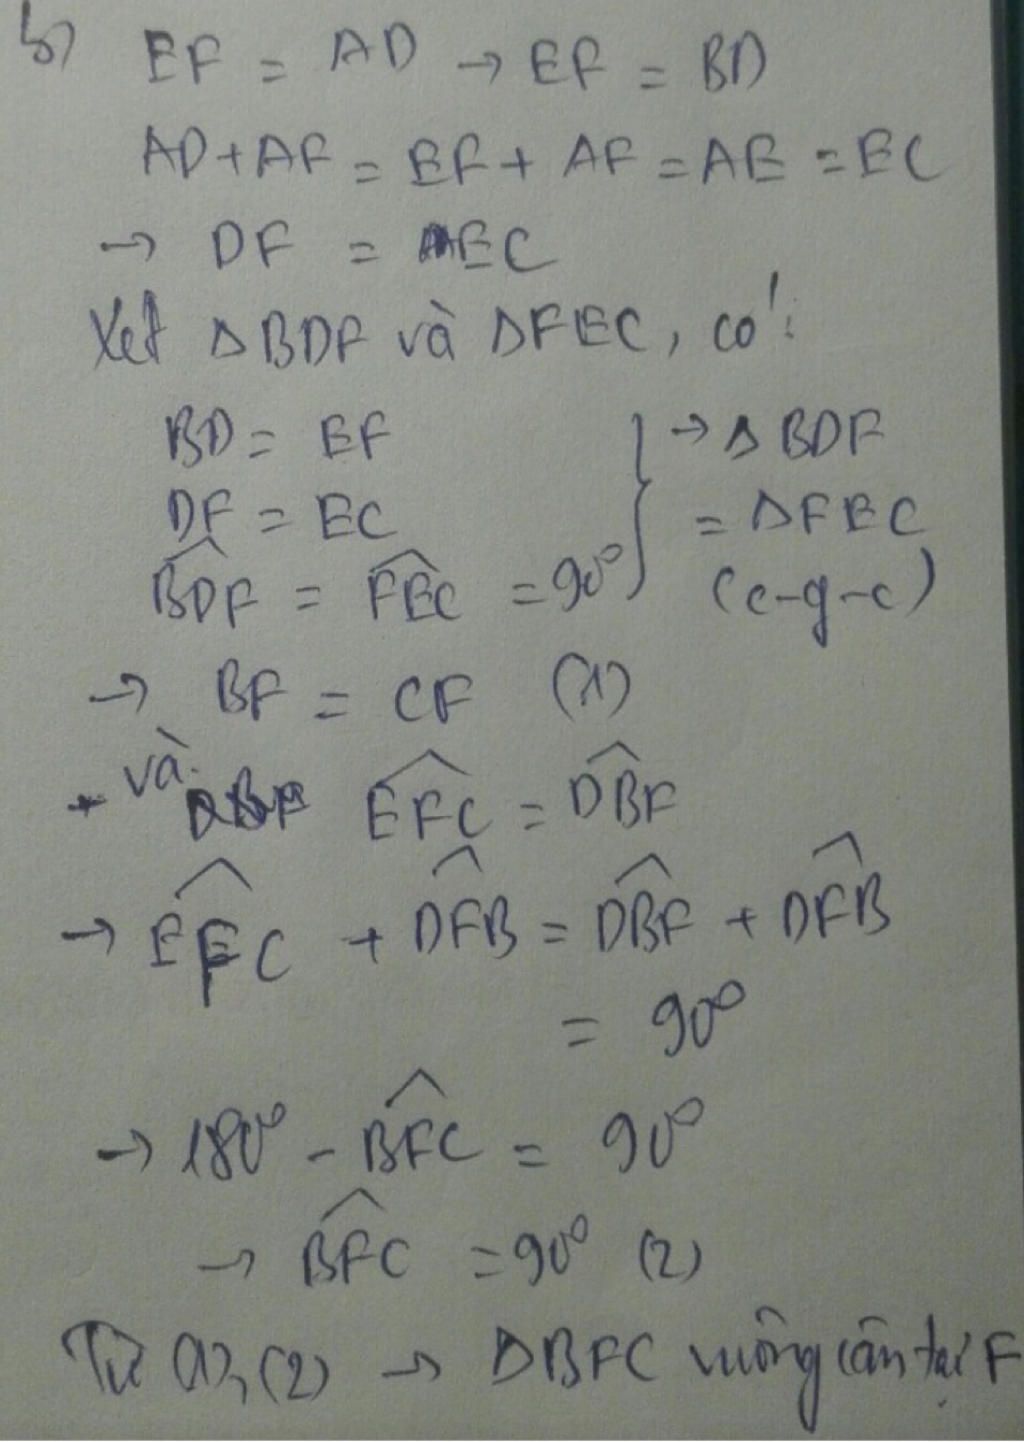 b)
EF = AD → EF = BD
AD + AF = EF + AF = AE = EC
→ DF = EC
Xét ΔBDF và ΔFEC, có:
BD = EF
DF = EC
B̂DF = F̂EC = 90°
} → ΔBDF
= ΔFEC
(c-g-c)
→ BF = CF (1)
+ và ÊFC = D̂BF
→ ÊFC + D̂FB = D̂BF + D̂FB
= 90°
→ 180° - B̂FC = 90°
→ B̂FC = 90° (2)
Từ (1), (2) → ΔBFC vuông cân tại F